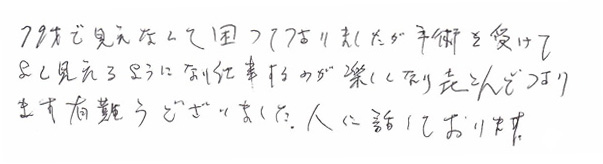 79才で見えなくて困っておりましたが手術を受けて
よく見えるようになり仕事するのが楽しくなり喜こんでおり
ます有難うございました。人に話しております。